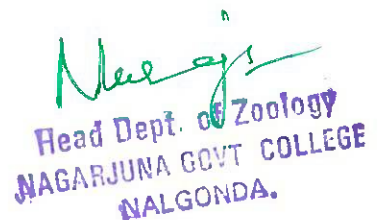 Head Dept. of Zoology
NAGARJUNA GOVT COLLEGE
NALGONDA.